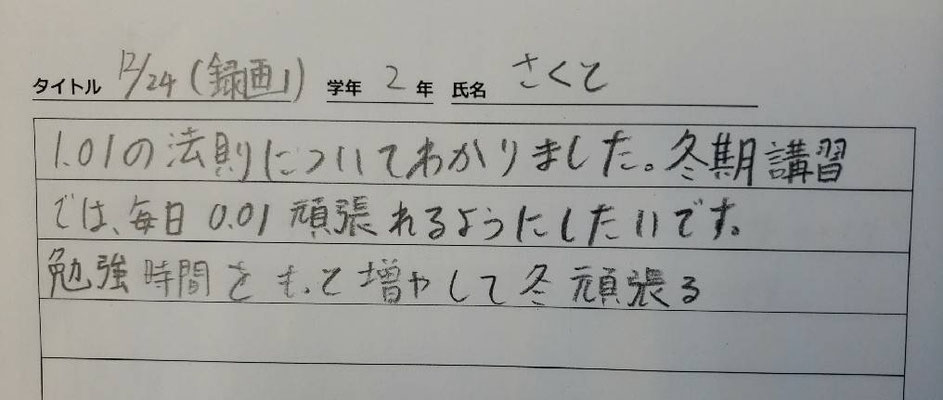 タイトル 12/24(録画1) 学年 2 年 氏名 さくと
1.01の法則についてわかりました。冬期講習
では、毎日 0.01 頑張れるようにしたいです。
勉強時間をもっと増やして冬頑張る